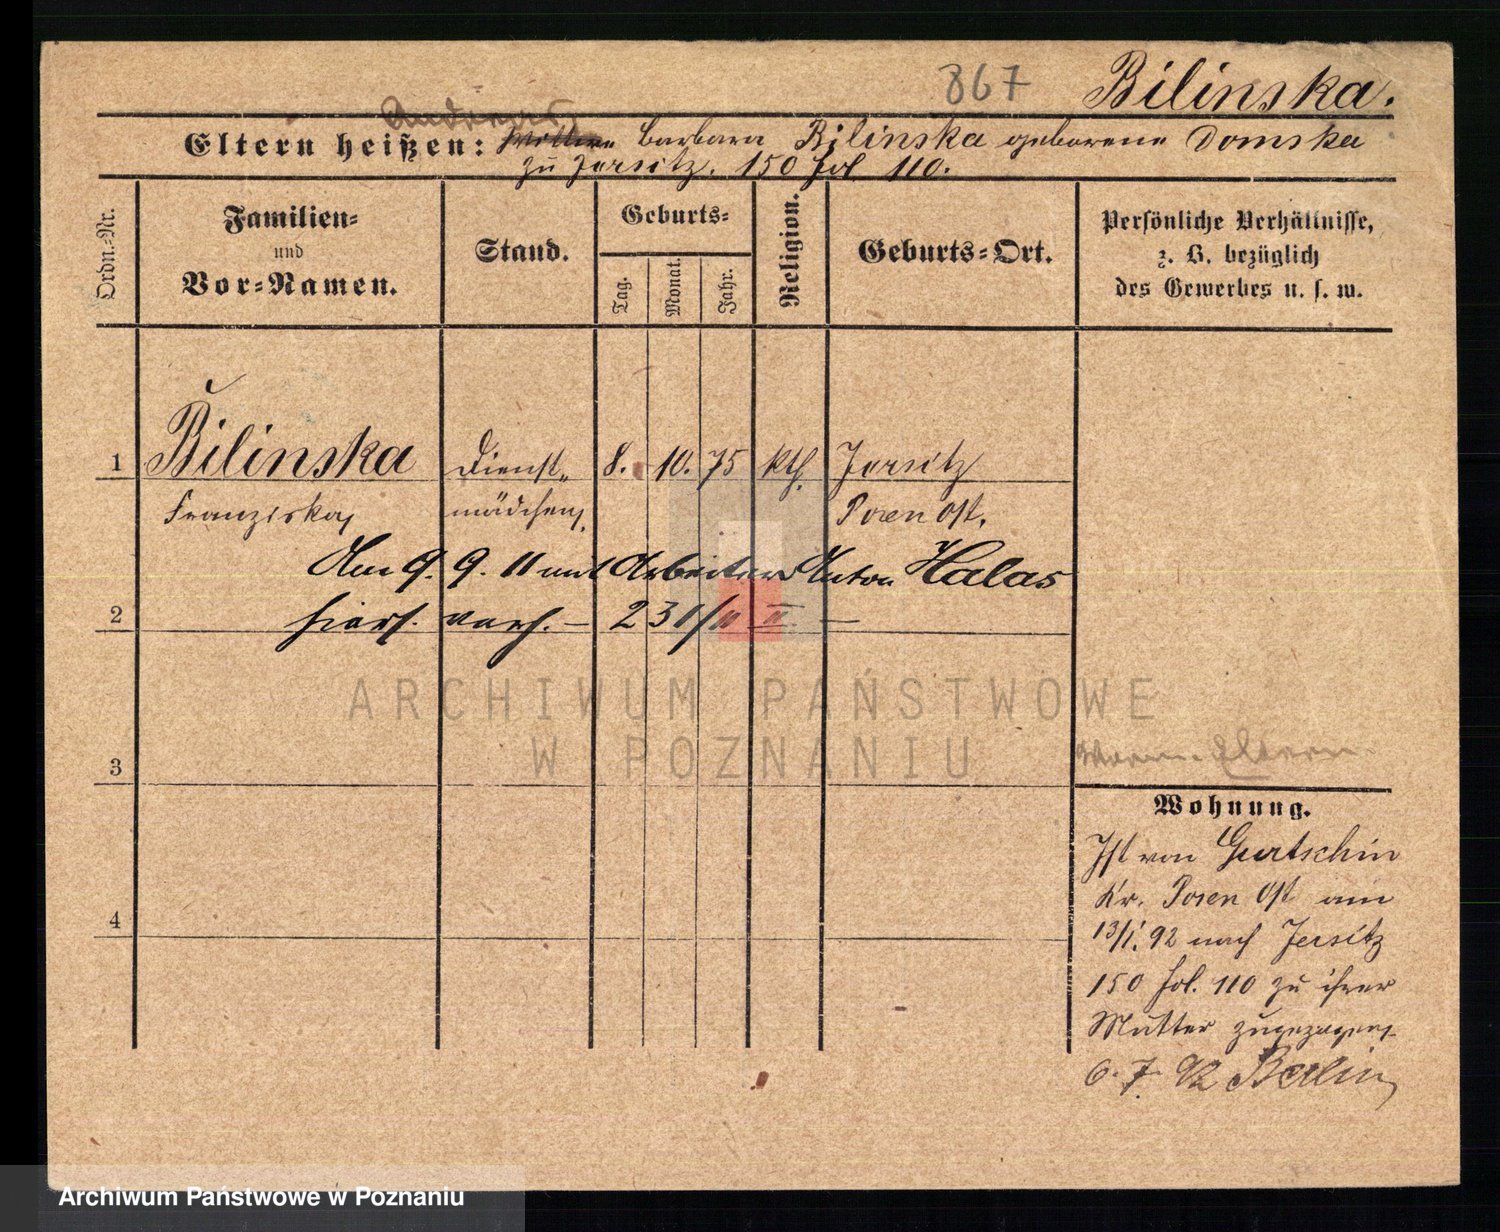 867 Bilinska.
Andreas
Eltern heißen: Barbara Bilinska geborene Domska
zu Jersitz. 150 fol 110.
Ordn.-Nr.
Familien-
und
Vor-Namen.
Stand.
Geburts-
Tag.
Monat.
Jahr.
Religion.
Geburts-Ort.
Persönliche Verhältnisse,
z. B. bezüglich
des Gewerbes u. s. w.
1 Bilinska Dienst- 8. 10. 75 kth. Jersitz
Franziska mädchen Posen Ost.
Am 9. 9. 11 mit Arbeiter Anton Halas
2 hier verh. — 231/11 II. —
3
4
ARCHIWUM PAŃSTWOWE
W POZNANIU
Eltern
Wohnung.
Ist von Gurtschin
Kr. Posen Ost am
13/1. 92 nach Jersitz
150 fol. 110 zu ihrer
Mutter zugezogen
6. 7. 92 Berlin
Archiwum Państwowe w Poznaniu